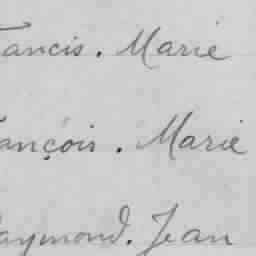 Francis. Marie
François. Marie
Raymond. Jean